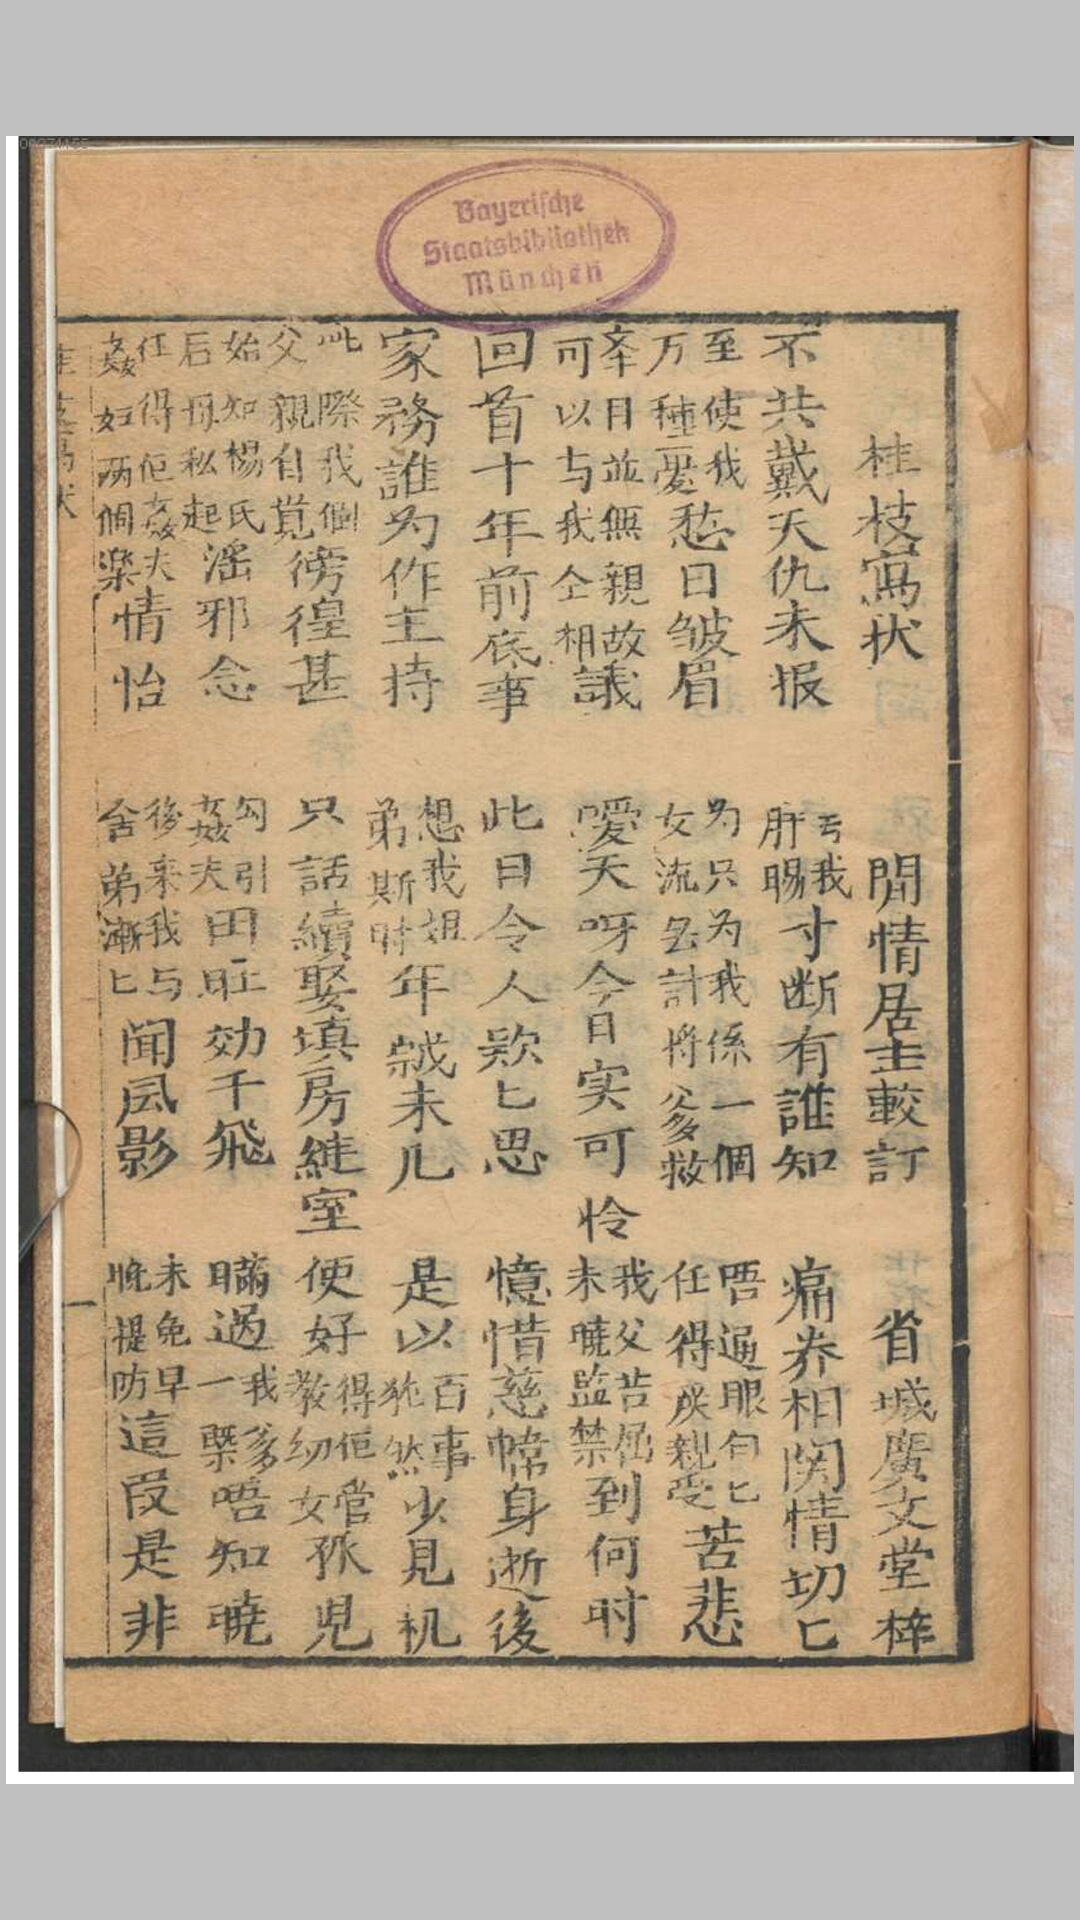 Bayerische
Staatsbibliothek
München
桂枝寫状 閒情居主較訂 省城廣文堂梓
不共戴天仇未报 亐我肝賜寸断有誰知 痛养相関情切匕
至使我万種憂愁日皱眉 为只为我係一個女流計將爹救 唔通眼甸匕任得親受苦悲
目並無親故可以与我仝相議 噯天呀今日实可怜 我父苦屈未曉監禁到何时
回首十年前底事 此日令人欵匕思 憶惜慈幃身逝後
家務誰为作主持 想我姐弟斯时年未儿 是以百事犹然少見机
此際我個父親自覓徬徨甚 只話續娶填房継室 便好得佢管教幼女孤児
始知楊氏后母私起滛邪念 勾引姦夫田旺効于飛 瞞过我爹一槩唔知曉
任得佢姦夫姦妇两個樂情怡 後来我与舍弟漸匕闻风影 未免早晚提防這段是非